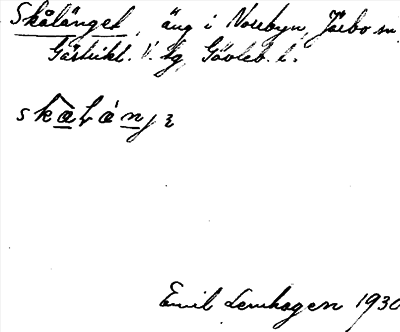 Skålänget, äng i Norrbyn, Järbo sn,
Gästrikl. V. tg, Gävleb. l.
Emil Lenhagen 1930